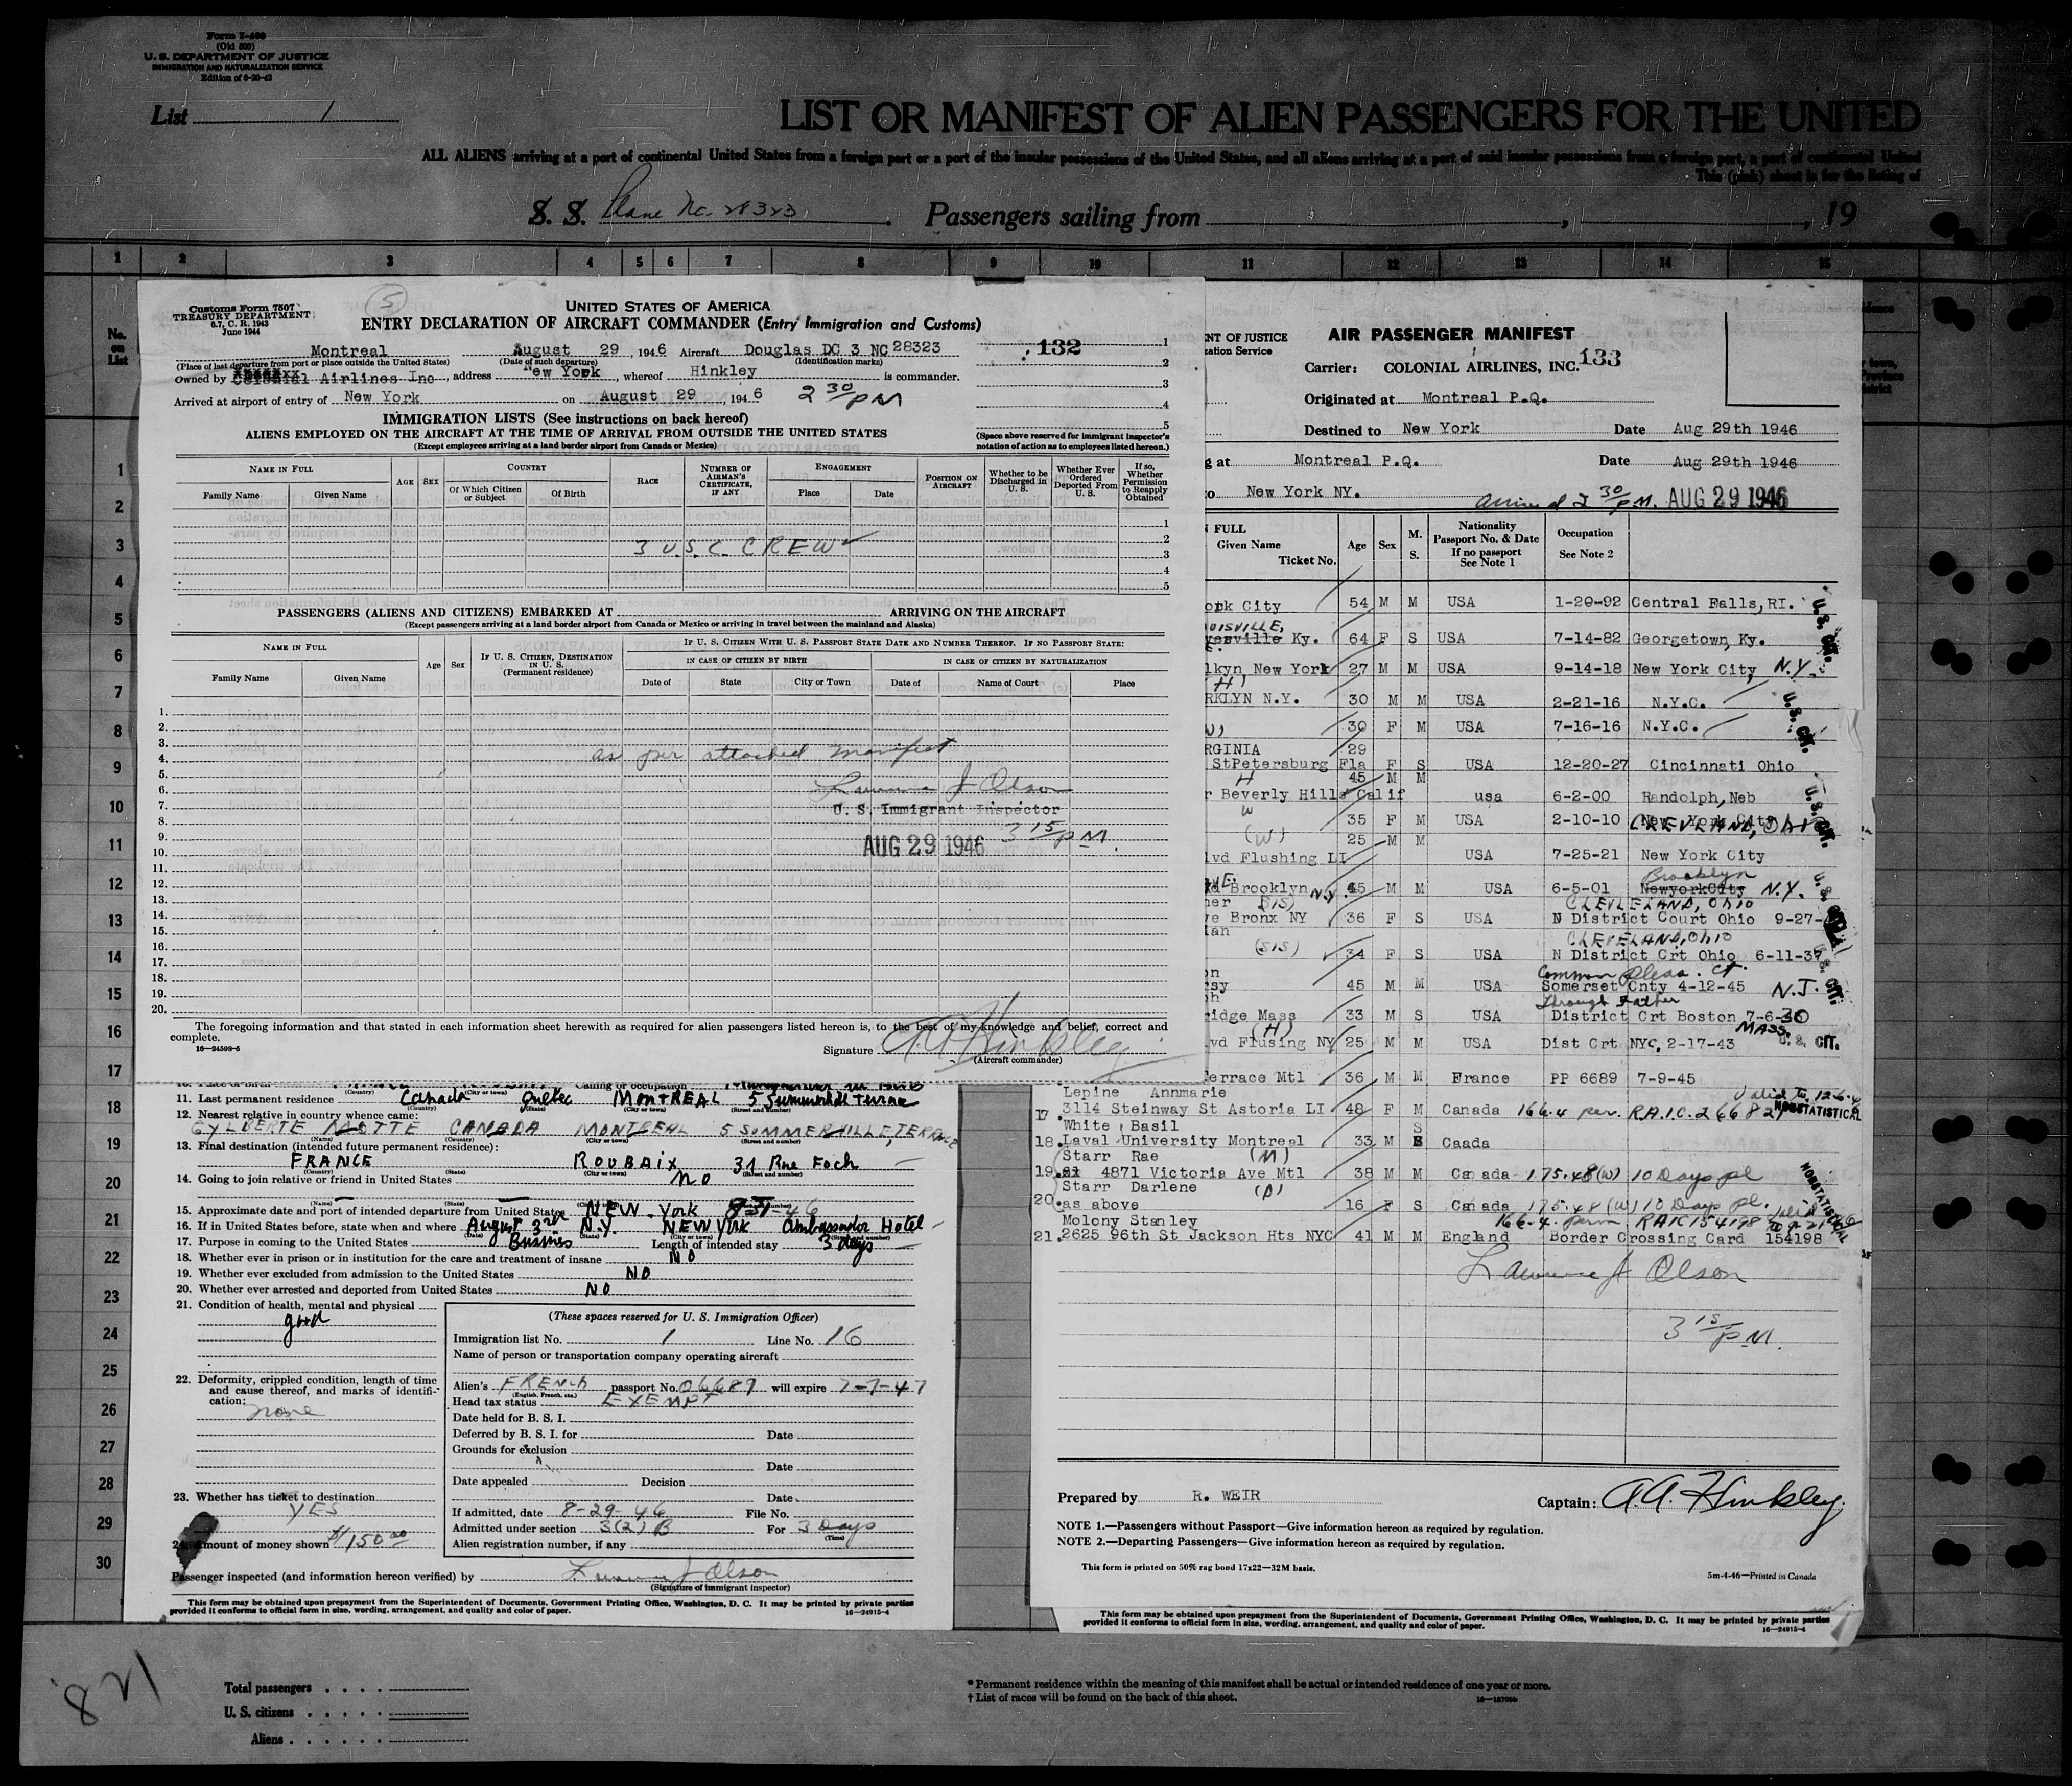 Form I-400
(Old 500)
U. S. DEPARTMENT OF JUSTICE
IMMIGRATION AND NATURALIZATION SERVICE
Edition of 6-20-42
List 1
LIST OR MANIFEST OF ALIEN PASSENGERS FOR THE UNITED
ALL ALIENS arriving at a port of continental United States from a foreign port or a port of the insular possessions of the United States, and all aliens arriving at a port of said insular possessions from a foreign port, a port of continental United
This (pink) sheet is for the listing of
S. S. Plane No. 28323. Passengers sailing from , , 19
1 2 3 4 5 6 7 8 9 10 11 12 13 14 15
No. on List
1
2
3
4
5
6
7
8
9
10
11
12
13
14
15
16
17
18
19
20
21
22
23
24
25
26
27
28
29
30
5
Customs Form 7507
TREASURY DEPARTMENT
6.7, C. R. 1943
June 1944
UNITED STATES OF AMERICA
ENTRY DECLARATION OF AIRCRAFT COMMANDER (Entry Immigration and Customs)
Montreal August 29, 1946 Aircraft Douglas DC 3 NC 28323
(Place of last departure from port or place outside the United States) (Date of such departure) (Identification marks)
Owned by Colonial Airlines Inc, address New York, whereof Hinkley is commander.
Arrived at airport of entry of New York on August 29, 1946 2 30/PM
132
1
2
3
4
5
(Space above reserved for immigrant inspector's notation of action as to employees listed hereon.)
IMMIGRATION LISTS (See instructions on back hereof)
ALIENS EMPLOYED ON THE AIRCRAFT AT THE TIME OF ARRIVAL FROM OUTSIDE THE UNITED STATES
(Except employees arriving at a land border airport from Canada or Mexico)
NAME IN FULL
Family Name Given Name
AGE SEX
COUNTRY
Of Which Citizen or Subject Of Birth
RACE
NUMBER OF AIRMAN'S CERTIFICATE, IF ANY
ENGAGEMENT
Place Date
POSITION ON AIRCRAFT
Whether to be Discharged in U. S.
Whether Ever Ordered Deported From U. S.
If so, Whether Permission to Reapply Obtained
1
2
3 U.S.C. CREW
3
4
5
PASSENGERS (ALIENS AND CITIZENS) EMBARKED AT ARRIVING ON THE AIRCRAFT
(Except passengers arriving at a land border airport from Canada or Mexico or arriving in travel between the mainland and Alaska)
NAME IN FULL
Family Name Given Name
Age Sex
IF U. S. CITIZEN, DESTINATION IN U. S.
(Permanent residence)
IF U. S. CITIZEN WITH U. S. PASSPORT STATE DATE AND NUMBER THEREOF. IF NO PASSPORT STATE:
IN CASE OF CITIZEN BY BIRTH IN CASE OF CITIZEN BY NATURALIZATION
Date of State City or Town Date of Name of Court Place
1.
2.
3.
4. as per attached manifest
5.
6. Lawrence J Olson
7. U. S. Immigrant Inspector
8.
9. AUG 29 1946 3 15/PM.
10.
11.
12.
13.
14.
15.
16.
17.
18.
19.
20.
The foregoing information and that stated in each information sheet herewith as required for alien passengers listed hereon is, to the best of my knowledge and belief, correct and complete.
16—24598-5
Signature A A Hinkley
(Aircraft commander)
11. Last permanent residence Canada Quebec MONTREAL 5 Summerhill Terrace
(Country) (State) (City or town) (Street and number)
12. Nearest relative in country whence came:
GYLBERTE MOTTE CANADA MONTREAL 5 SOMMERHILLE TERRACE
(Name) (City or town) (Street and number)
13. Final destination (intended future permanent residence):
FRANCE ROUBAIX 31 Rue Foch
(Country) (State) (City or town) (Street and number)
14. Going to join relative or friend in United States No
(Name) (State)
15. Approximate date and port of intended departure from United States NEW York 8-31-46
16. If in United States before, state when and where August 3rd N.Y. NEW YORK Ambassador Hotel
(Date) (State) (City or town) (Street and number)
17. Purpose in coming to the United States Bussines Length of intended stay 3 days
18. Whether ever in prison or in institution for the care and treatment of insane NO
19. Whether ever excluded from admission to the United States NO
20. Whether ever arrested and deported from United States NO
21. Condition of health, mental and physical
good
22. Deformity, crippled condition, length of time and cause thereof, and marks of identification:
none
23. Whether has ticket to destination
YES
24. Amount of money shown $150.00
(These spaces reserved for U. S. Immigration Officer)
Immigration list No. 1 Line No. 16
Name of person or transportation company operating aircraft
Alien's FRENCH passport No. 06689 will expire 7-7-47
(English, French, etc.)
Head tax status EXEMPT
Date held for B. S. I.
Deferred by B. S. I. for Date
Grounds for exclusion
Date
Date appealed Decision
Date
If admitted, date 8-29-46 File No.
Admitted under section 3(2) B For 3 Days
(Time)
Alien registration number, if any
Passenger inspected (and information hereon verified) by Lawrence J Olson
(Signature of immigrant inspector)
This form may be obtained upon prepayment from the Superintendent of Documents, Government Printing Office, Washington, D. C. It may be printed by private parties provided it conforms to official form in size, wording, arrangement, and quality and color of paper.
16—24915-4
NT OF JUSTICE
zation Service
AIR PASSENGER MANIFEST
Carrier: COLONIAL AIRLINES, INC. 133
Originated at Montreal P.Q.
Destined to New York Date Aug 29th 1946
g at Montreal P.Q. Date Aug 29th 1946
to New York NY.
arrived 2 30/PM. AUG 29 1946
FULL
Given Name
Ticket No.
Age Sex M. S.
Nationality
Passport No. & Date
If no passport
See Note 1
Occupation
See Note 2
ork City 54 M M USA 1-20-92 Central Falls, RI.
OUISVILLE,
yesville Ky. 64 F S USA 7-14-82 Georgetown, Ky.
lkyn New York 27 M M USA 9-14-18 New York City, N.Y.
(H)
RKLYN N.Y. 30 M M USA 2-21-16 N.Y.C.
W) 30 F M USA 7-16-16 N.Y.C.
RGINIA 29
StPetersburg Fla F S USA 12-20-27 Cincinnati Ohio
H 45 M M
r Beverly Hills Calif usa 6-2-00 Randolph, Neb
W 35 F M USA 2-10-10 CLEVELAND, Ohio
(W) 25 M M
lvd Flushing LI USA 7-25-21 New York City
Brooklyn
d Brooklyn N.Y. 45 M M USA 6-5-01 NewyorkCity N.Y.
her (SIS) CLEVELAND, OHIO
ve Bronx NY 36 F S USA N District Court Ohio 9-27-
CLEVELAND, Ohio
(SIS) 34 F S USA N District Crt Ohio 6-11-37
Common Pleas. Ct.
45 M M USA Somerset Cnty 4-12-45 N.J.
Through Father
ridge Mass 33 M S USA District Crt Boston 7-6-30
MASS.
(H)
lvd Flusing NY 25 M M USA Dist Crt NYC, 2-17-43 U. S. CIT.
errace Mtl 36 M M France PP 6689 7-9-45
Lepine Annmarie
17. 3114 Steinway St Astoria LI 48 F M Canada 166.4 per. R.A.I.C. 266821 NONSTATISTICAL
White Basil
18. Laval University Montreal 33 M S Caada
Starr Rae (M)
19. 4871 Victoria Ave Mtl 38 M M Canada 175.48(W) 10 Days pl
Starr Darlene (D)
20. as above 16 F S Canada 175.48 (W) 10 Days pl.
NONSTATISTICAL
Molony Stanley 166-4. perm. RAIC 154198
21. 2625 96th St Jackson Hts NYC 41 M M England Border Crossing Card 154198
Lawrence J Olson
3 15/PM.
Prepared by R. WEIR Captain: A.A. Hinkley
NOTE 1.—Passengers without Passport—Give information hereon as required by regulation.
NOTE 2.—Departing Passengers—Give information hereon as required by regulation.
This form is printed on 50% rag bond 17x22—32M basis.
5m-4-46—Printed in Canada
This form may be obtained upon prepayment from the Superintendent of Documents, Government Printing Office, Washington, D. C. It may be printed by private parties provided it conforms to official form in size, wording, arrangement, and quality and color of paper.
16—24915-4
821
Total passengers
U. S. citizens
Aliens
* Permanent residence within the meaning of this manifest shall be actual or intended residence of one year or more.
† List of races will be found on the back of this sheet.